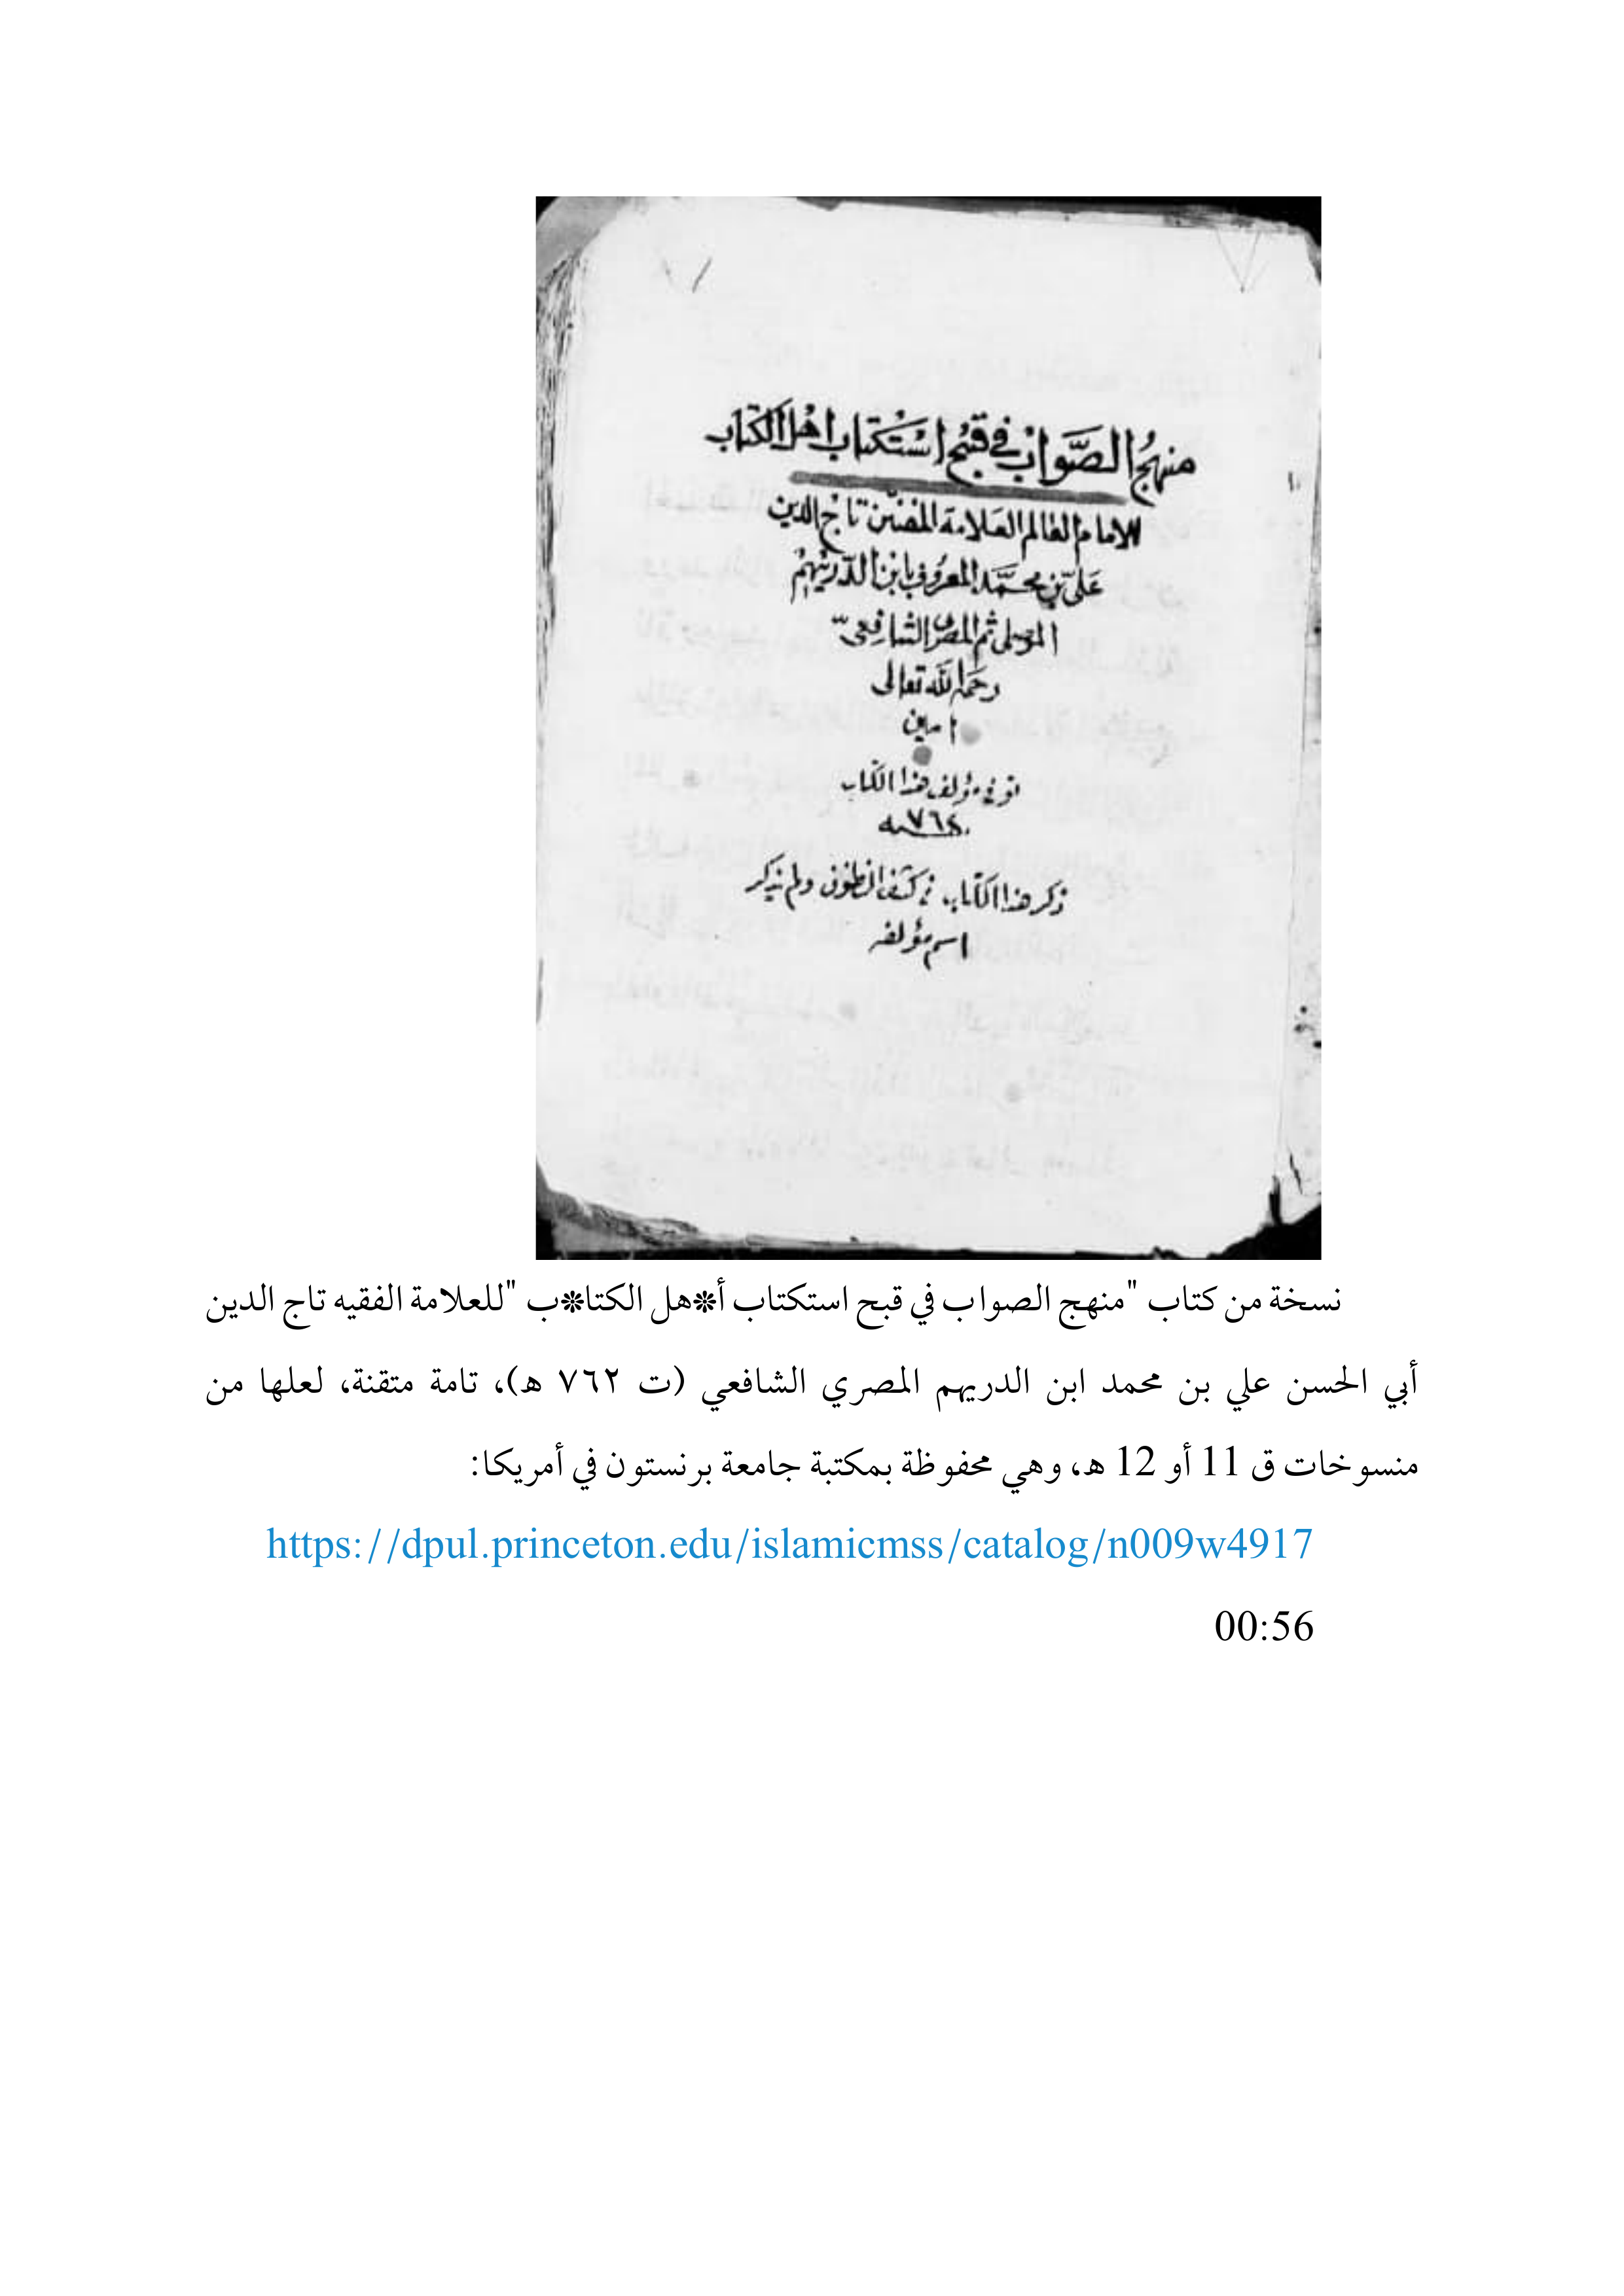 منهجُ الصَّواب في قبح استكتاب اهل الكتاب
للامام العالم العلامة المفنن تاج الدين
علىّ بن محمَّد المعروف بابن الدّريهم
الموصلى ثم المصرى الشافعىّ
رحمه الله تعالى
امين
توفى مؤلف هذا الكتاب
سنة ٧٦٢
ذكر هذا الكتاب فى كشف الظنون ولم يذكر
اسم مؤلفه
نسخة من كتاب "منهج الصواب في قبح استكتاب أ*هل الكتا*ب "للعلامة الفقيه تاج الدين
أبي الحسن علي بن محمد ابن الدريهم المصري الشافعي (ت ٧٦٢ هـ)، تامة متقنة، لعلها من
منسوخات ق 11 أو 12 هـ، وهي محفوظة بمكتبة جامعة برنستون في أمريكا:
https://dpul.princeton.edu/islamicmss/catalog/n009w4917
00:56